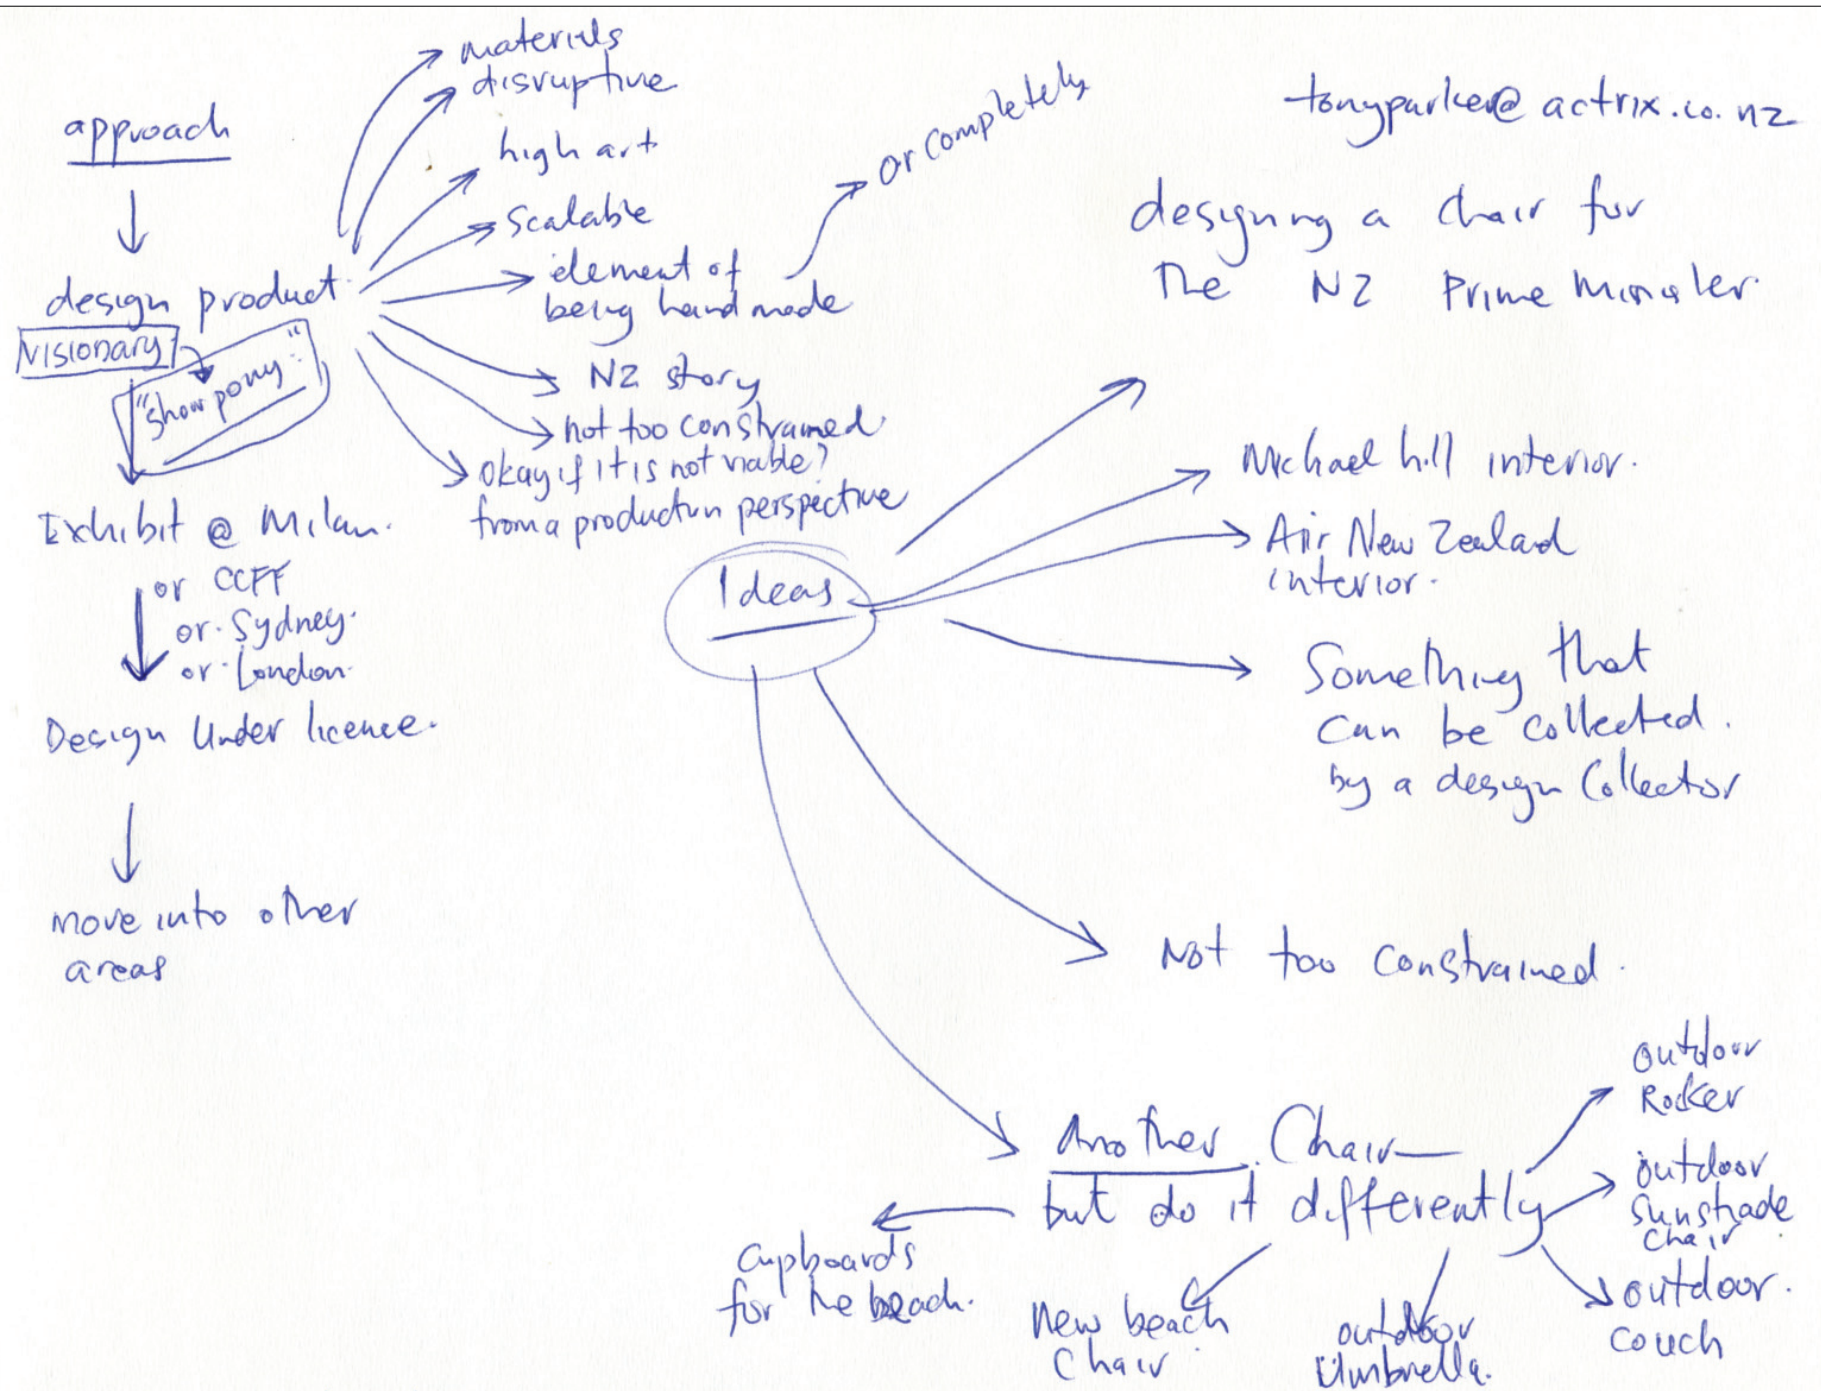 approach
design product
visionary
"show pony"
Exhibit @ Milan.
or CCFF
or Sydney.
or London.
Design Under licence.
move into other
areas
materials
disruptive
high art
Scalable
element of
being handmade
or completely
NZ story
not too constrained
okay if it is not viable?
from a production perspective
tonyparker@actrix.co.nz
designing a chair for
The NZ Prime Minister.
Ideas
Michael hill interior.
Air New Zealand
interior.
Something that
Can be collected.
by a design Collector
Not too constrained.
Another Chair—
but do it differently
Cupboards
for the beach.
New beach
Chair.
outdoor
Umbrella.
outdoor
Rocker
outdoor
sunshade
chair
outdoor.
couch